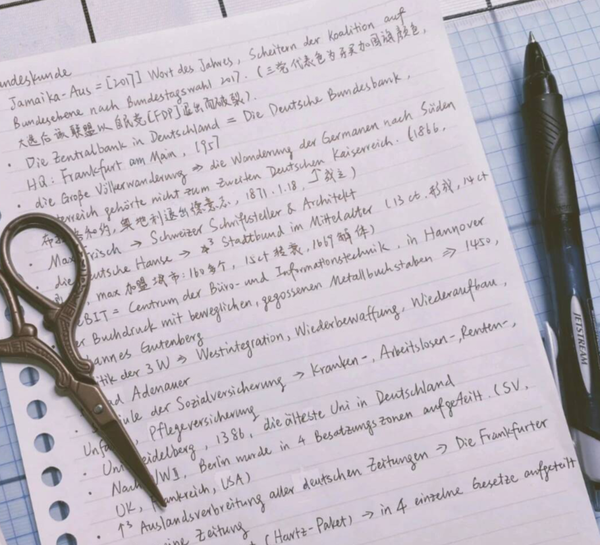 ndeskunde
Jamaika-Aus = [2017] Wort des Jahres, Scheitern der Koalition auf
Bundesebene nach Bundestagswahl 2017. (三党代表色为牙买加国旗颜色,
大选后该联盟以自民党[FDP]退出而破裂).
· Die Zentralbank in Deutschland = Die Deutsche Bundesbank,
HQ: Frankfurt am Main, 1957
· die Große Völkerwanderung → die Wanderung der Germanen nach Süden
terreich gehörte nicht zum Zweiten Deutschen Kaiserreich. (1866,
奥地利退出德意志, 1871.1.18,
· Max Frisch → Schweizer Schriftsteller & Architekt
· die eutsche Hanse → Stadtbund im Mittelalter (13 ct. 形成, 14 ct
max 加盟城市: 160多个, 15ct 1669 解体)
eBIT = Centrum der Büro- und Informationstechnik, in Hannover
er Buchdruck mit beweglichen, gegossenen Metallbuchstaben ⇒ 1450,
annes Gutenberg
itik der 3W → Westintegration, Wiederbewaffung, Wiederaufbau,
ad Adenauer
äule der Sozialversicherung → Kranken-, Arbeitslosen-, Renten-,
Unfa Pflegeversicherung
· Uni eidelberg, 1386, die älteste Uni in Deutschland
· Nach WII, Berlin wurde in 4 Besatzungszonen aufgeteilt. (SV,
UK, Frankreich, USA)
· ↑3 Auslandsverbreitung aller deutschen Zeitungen → Die Frankfurter
eine Zeitung
(Hartz-Paket) → in 4 einzelne Gesetze aufgeteilt
JETSTREAM